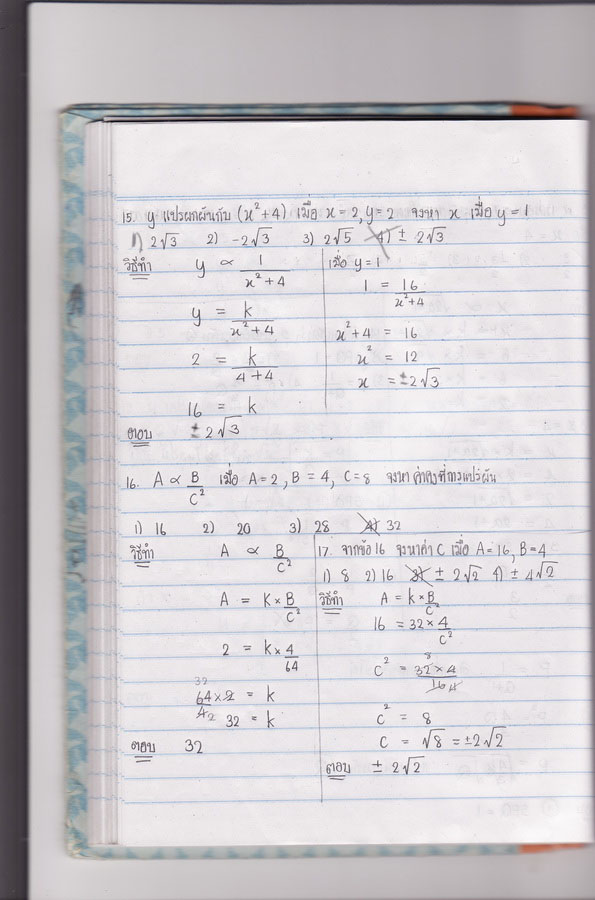 15. y แปรผกผันกับ (x²+4) เมื่อ x = 2, y = 2 จงหา x เมื่อ y = 1
1) 2√3 2) -2√3 3) 2√5 4) ± 2√3
วิธีทำ y ∝ 1/(x²+4)
y = k/(x²+4)
2 = k/(4+4)
16 = k
ตอบ ±2√3
เมื่อ y = 1
1 = 16/(x²+4)
x²+4 = 16
x² = 12
x = ±2√3
16. A ∝ B/C² เมื่อ A = 2, B = 4, C = 8 จงหาค่าคงที่การแปรผัน
1) 16 2) 20 3) 28 4) 32
วิธีทำ A ∝ B/C²
A = K × B/C²
2 = k × 4/64
64 × 2/4 = k
32 = k
ตอบ 32
17. จากข้อ 16 จงหาค่า C เมื่อ A = 16, B = 4
1) 8 2) 16 3) ± 2√2 4) ± 4√2
วิธีทำ A = k × B/C²
16 = 32 × 4/C²
C² = 32 × 4/16
C² = 8
C = √8 = ±2√2
ตอบ ± 2√2